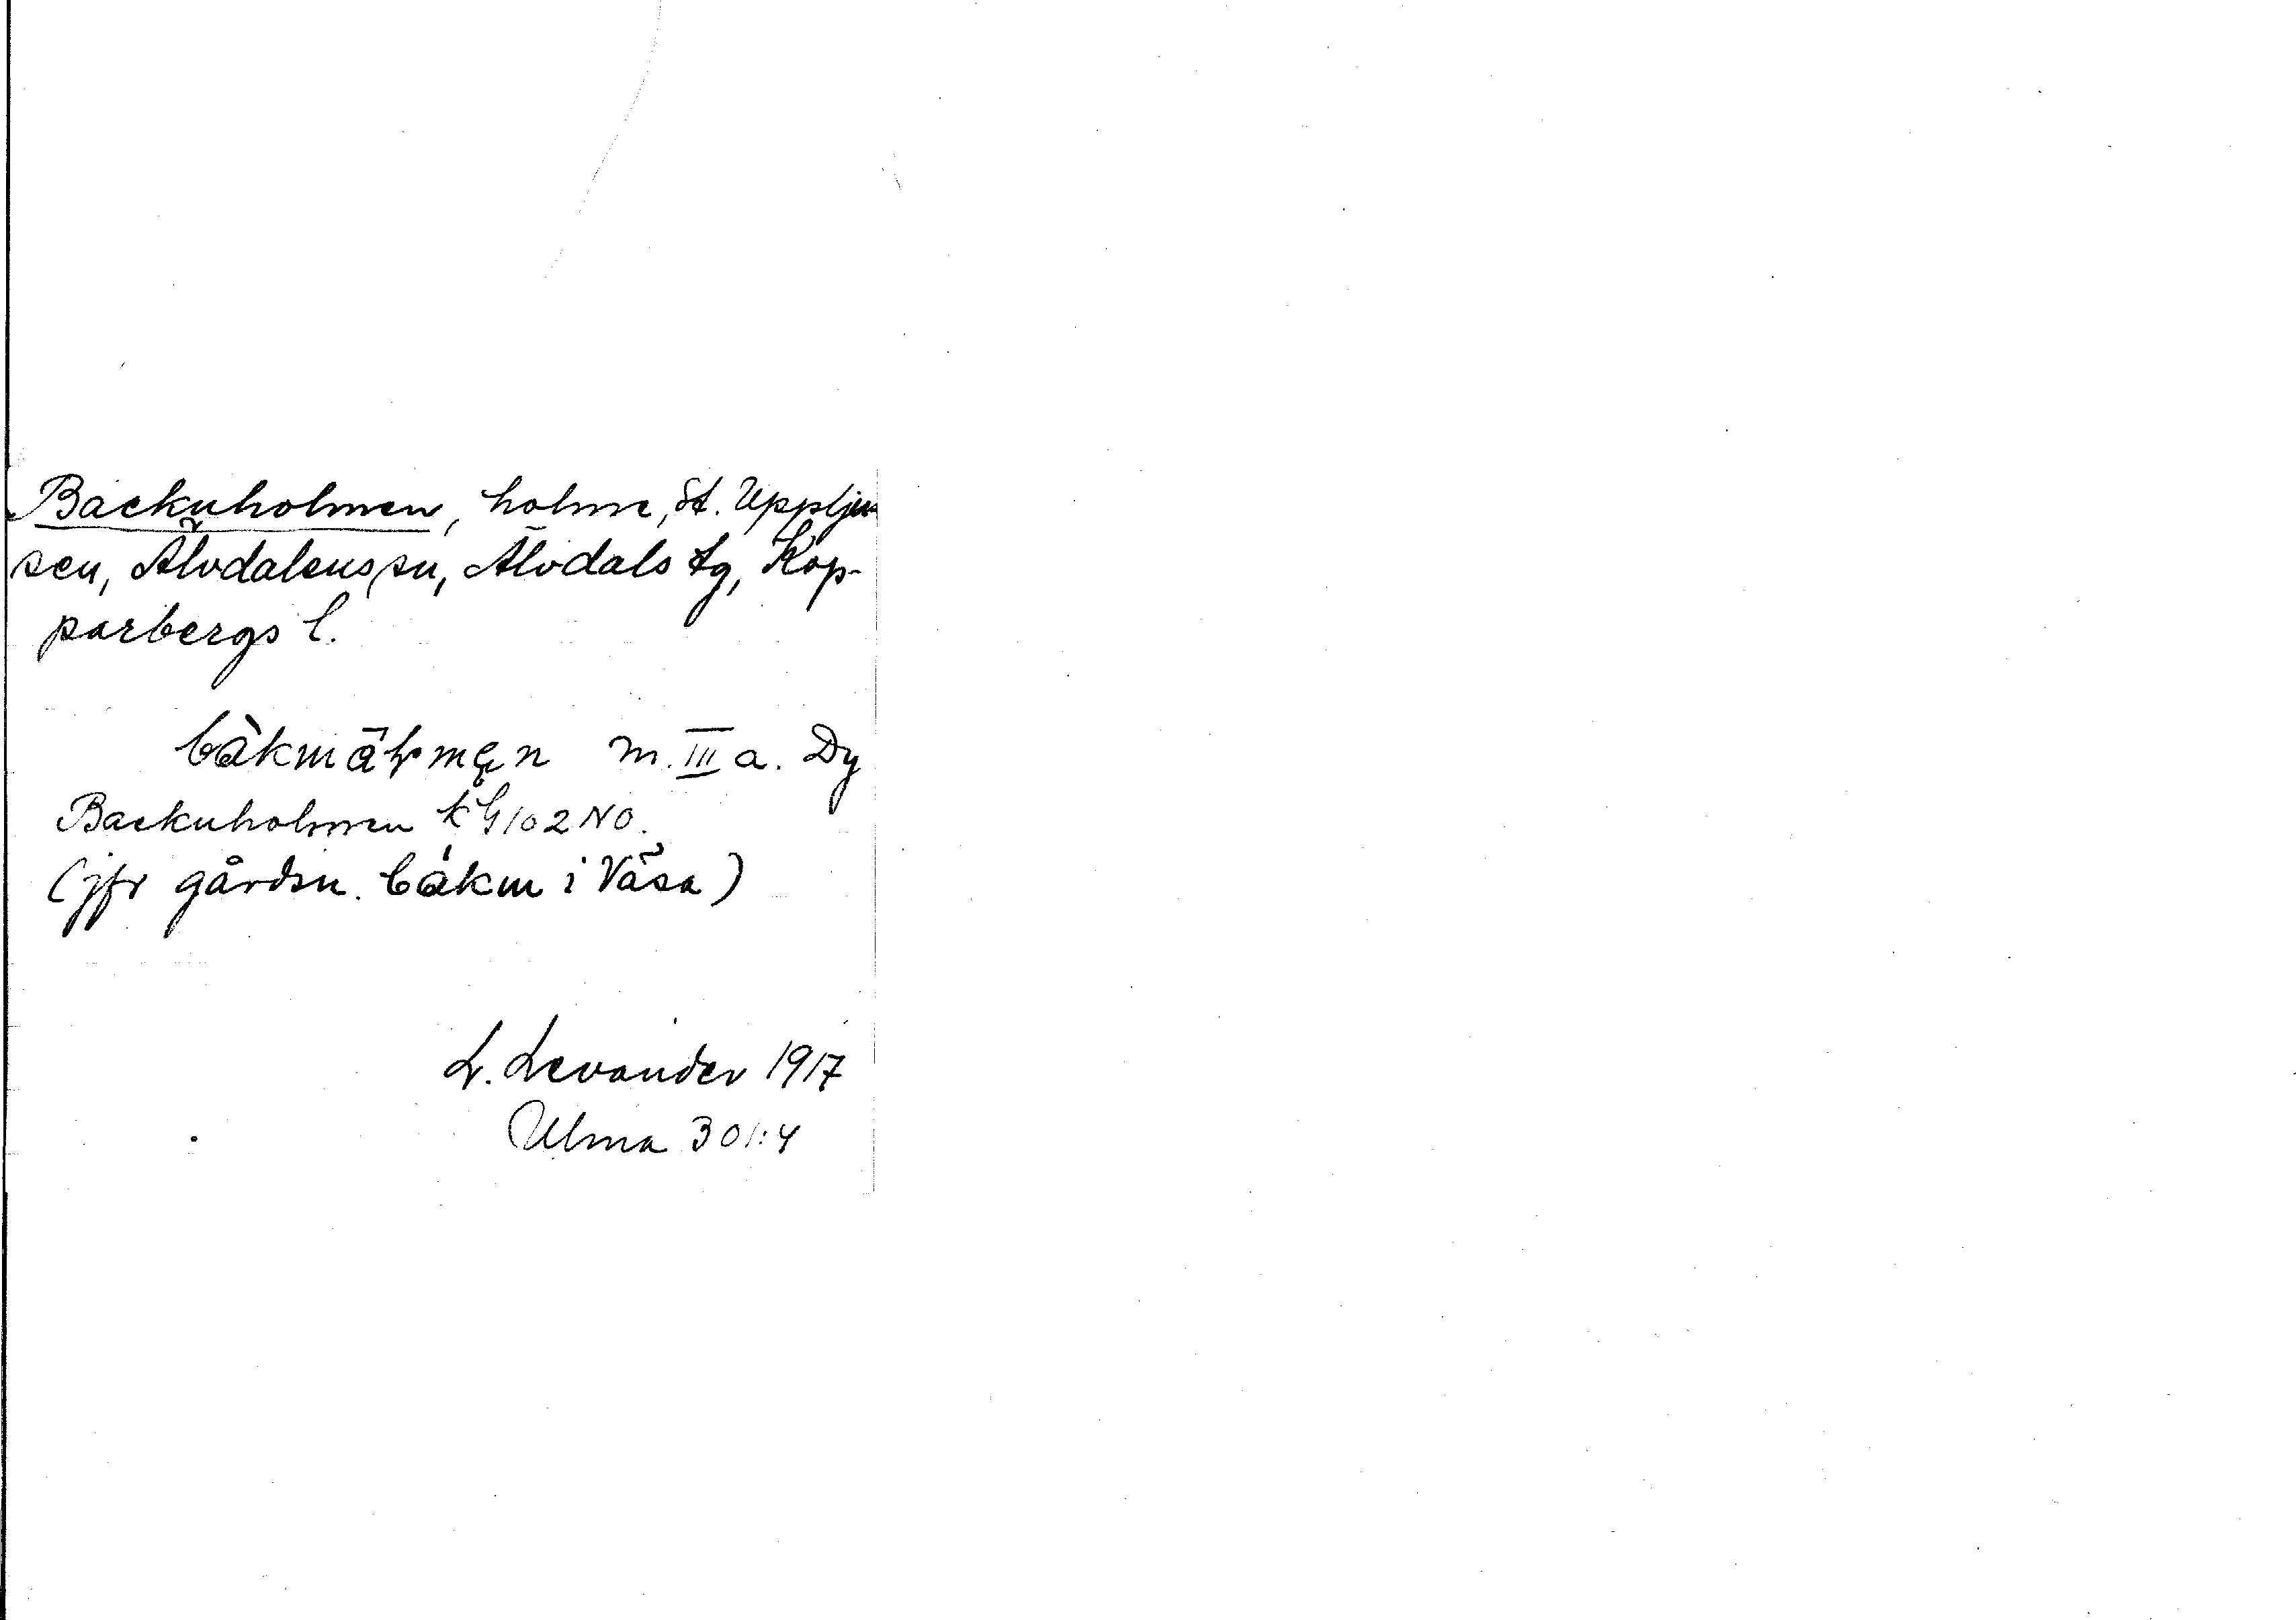 Backuholmen, holme, St. Uppljun
sen, Älvdalens sn, Älvdals tg, Kop-
parbergs l.
m. III a. Dy
Backuholmen k G 102 NO.
(jfr gårdsn. bàkm i Väsa)
L. Levander 1917
Ulma 301:4